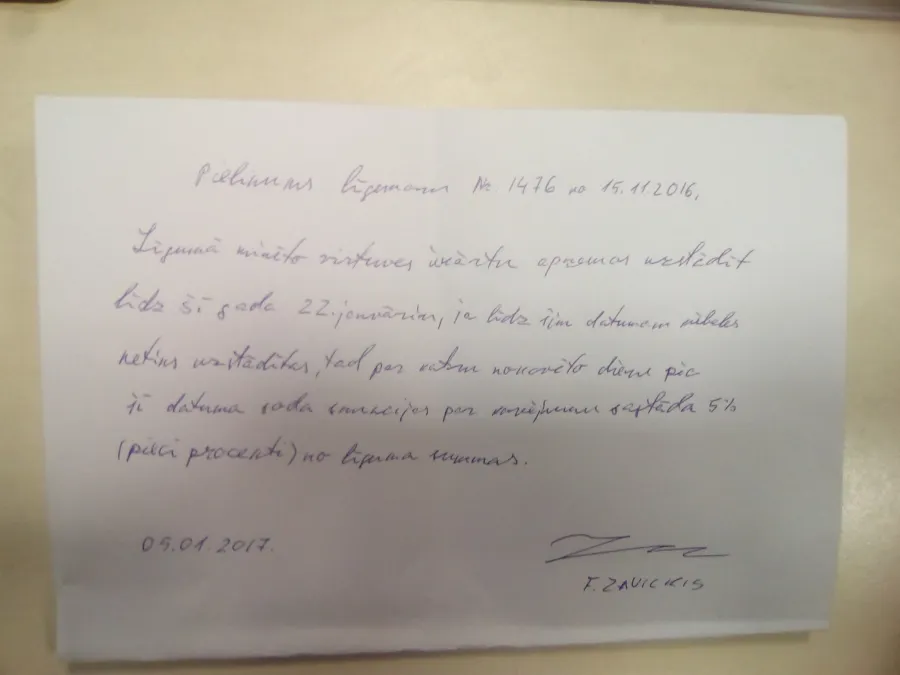 Pielikums līgumam № 1476 no 15.11.2016.
Līgumā minēto virtuves iekārtu apņemas uzstādīt
līdz šī gada 22.janvārim, ja līdz šim datumam mēbeles
netiks uzstādītas, tad par katru nokavēto dienu pēc
šī datuma soda sankcijas par kavējumu sastāda 5%
(pieci procenti) no līguma summas.
09.01.2017.
F. ZAVICKIS